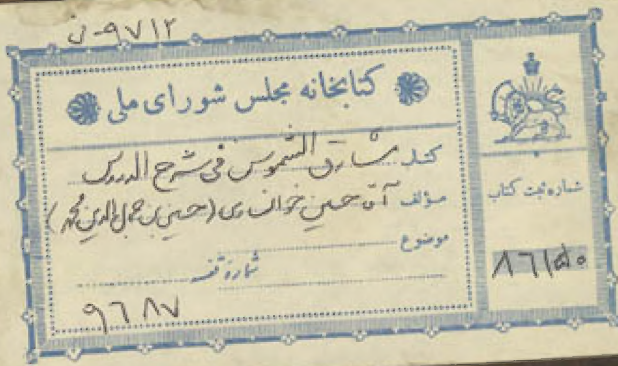 ۹۷۱۲-ن
کتابخانه مجلس شورای ملی
کتاب مشارق الشموس فی شرح الدروس
مؤلف آقا حسین خوانساری (حسین بن جمال‌الدین محمد)
موضوع
شماره قفسه
۹۶۸۷
شماره ثبت کتاب
۸۶۱۵۰